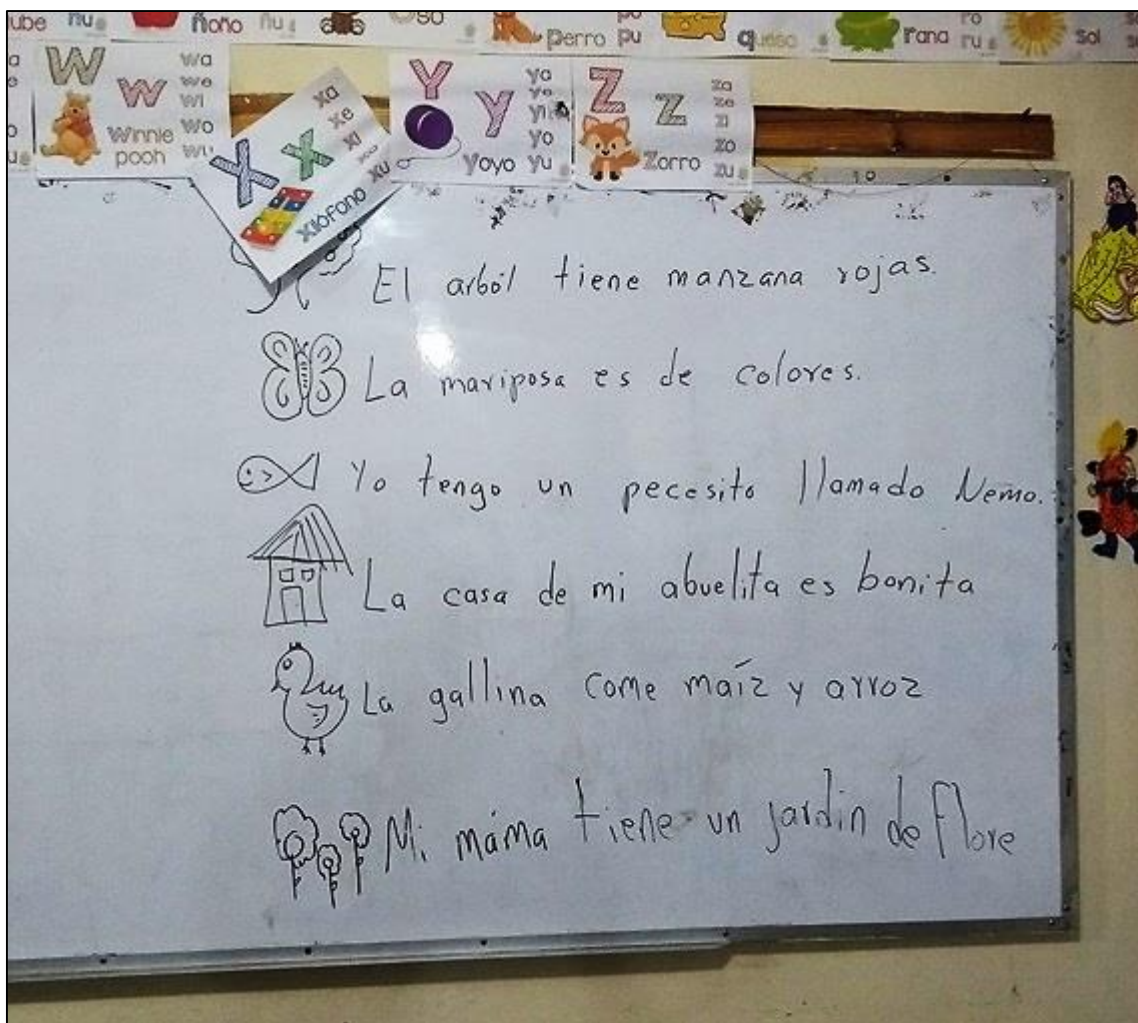 ube ñu Ñoño ñu oso perro pu queso rana ru sol
W w wa
we
wi
Winnie wo
pooh wu
X x xa
xe
xi
xo
xilófono xu
Y y ya
ye
yi
yo
yoyo yu
Z z za
ze
zi
zo
zorro zu
El arból tiene manzana rojas.
La mariposa es de colores.
Yo tengo un pecesito llamado Nemo.
La casa de mi abuelita es bonita
La gallina come maíz y arroz
Mi máma tiene un jardin de flore